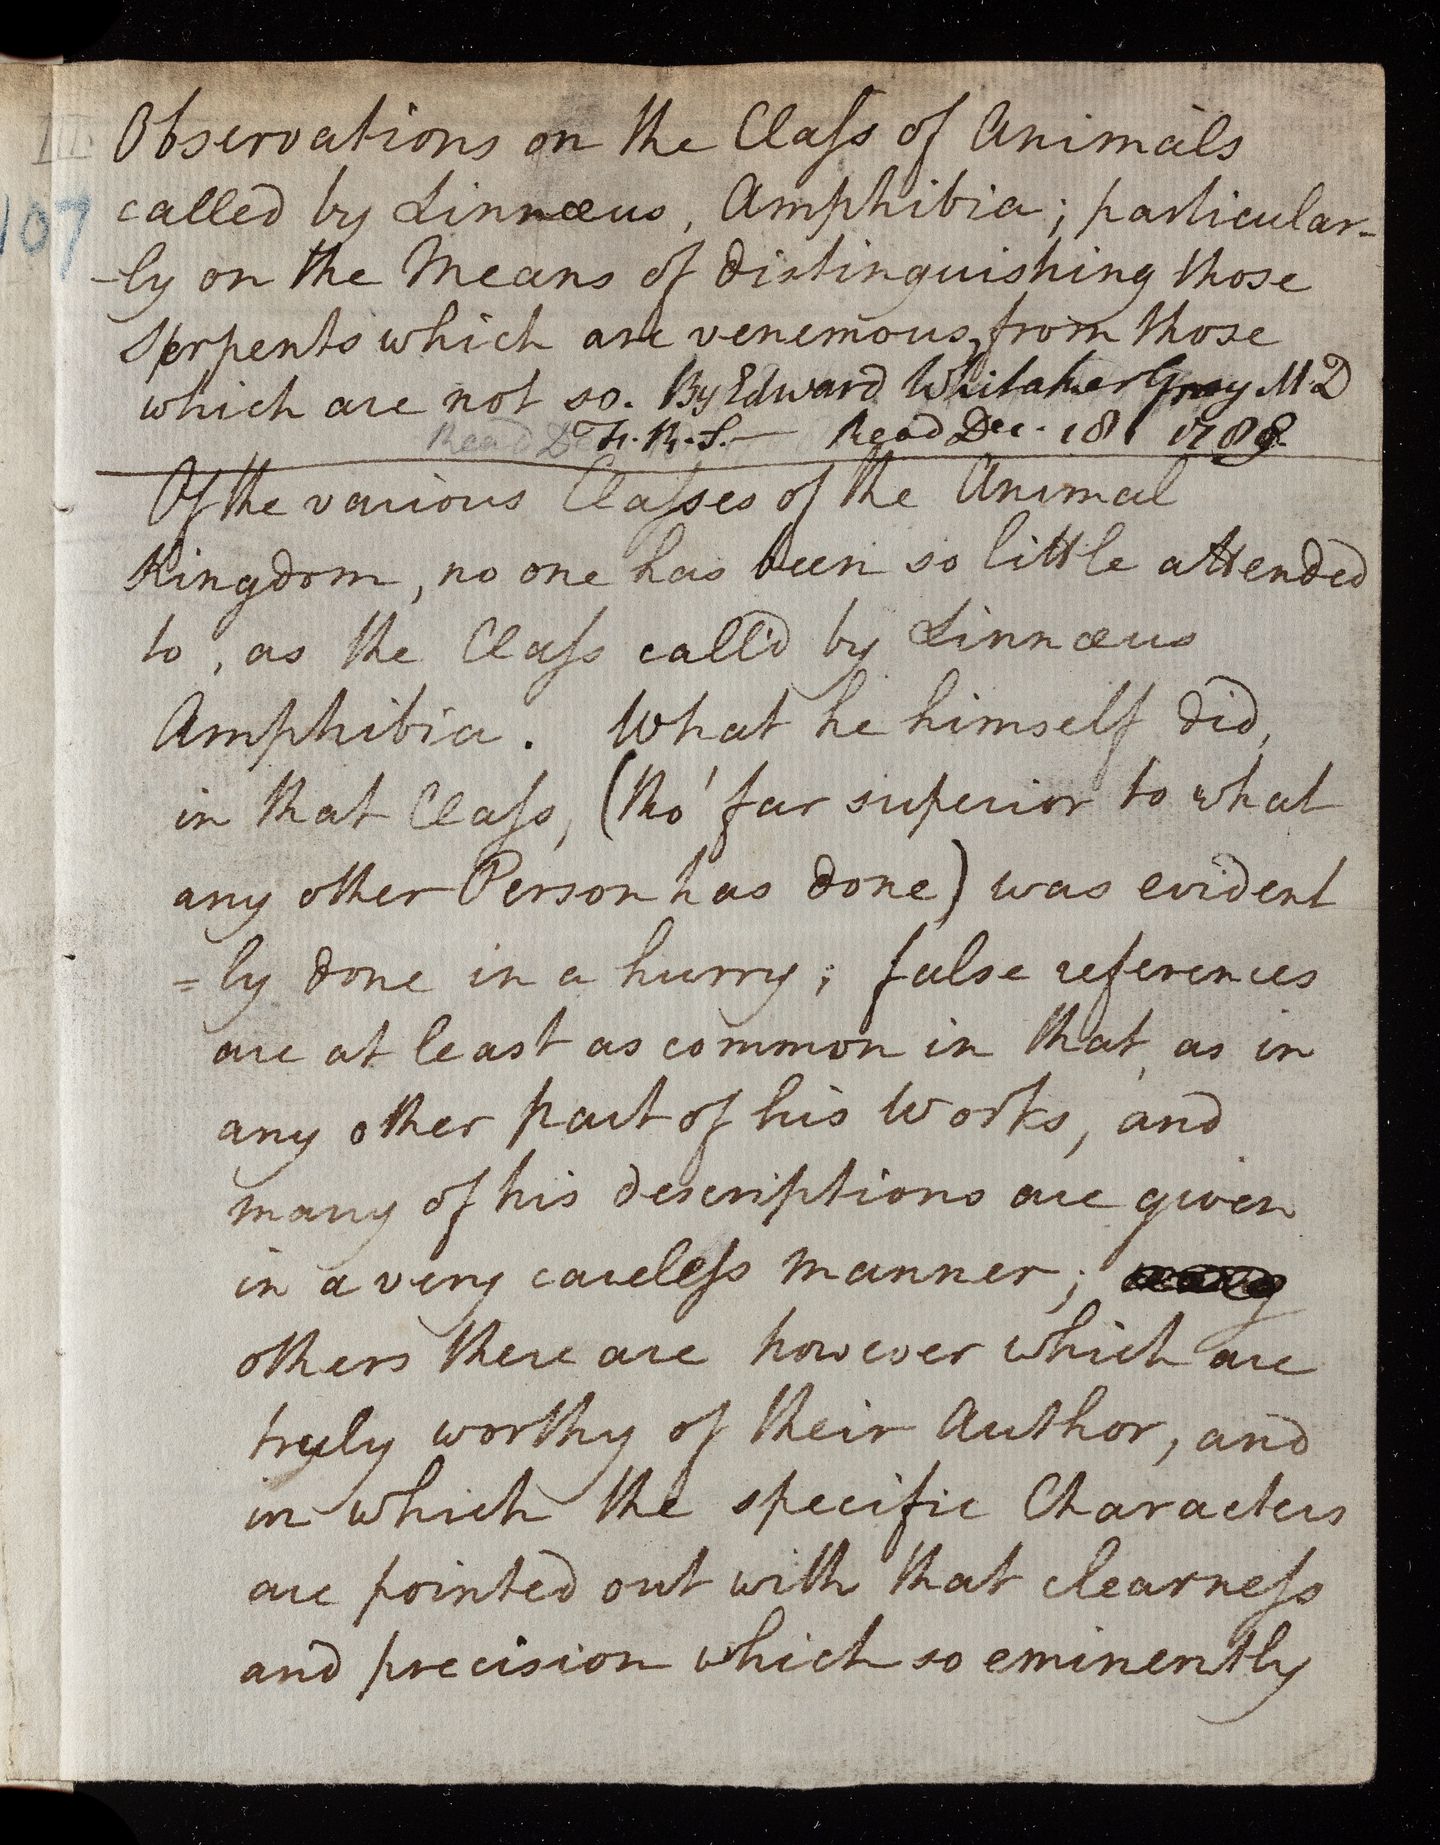 III.
107
Observations on the Claſs of Animals
called by Linnæus, Amphibia; particular-
-ly on the Means of distinguishing those
Serpents which are venemous, from those
which are not so. By Edward Whitaker Gray M.D
F.R.S. — Read Dec. 18 1788
Of the various Claſses of the Animal
Kingdom, no one has been so little attended
to, as the Claſs call'd by Linnæus
Amphibia. What he himself did,
in that Claſs, (tho' far superior to what
any other Person has done) was evident
=ly done in a hurry; false references
are at least as common in that, as in
any other part of his Works, and
many of his descriptions are given
in a very careleſs manner;
others there are however which are
truly worthy of their Author, and
in which the specific Characters
are pointed out with that clearneſs
and precision which so eminently